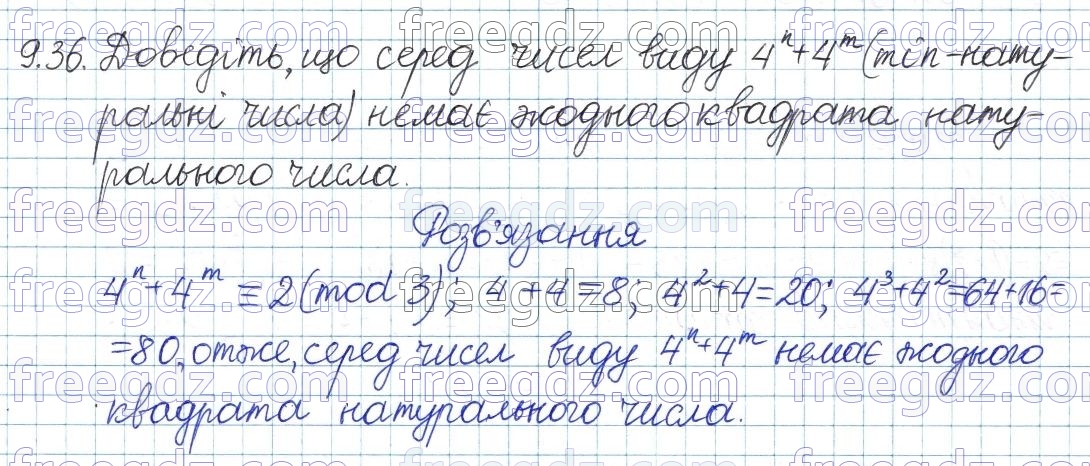 9.36. Доведіть, що серед чисел виду 4ⁿ+4ᵐ (m і n – нату-
ральні числа) немає жодного квадрата нату-
рального числа.
Розв'язання
4ⁿ+4ᵐ ≡ 2 (mod 3); 4+4=8; 4²+4=20; 4³+4²=64+16=
=80, отже, серед чисел виду 4ⁿ+4ᵐ немає жодного
квадрата натурального числа.
freegdz.com